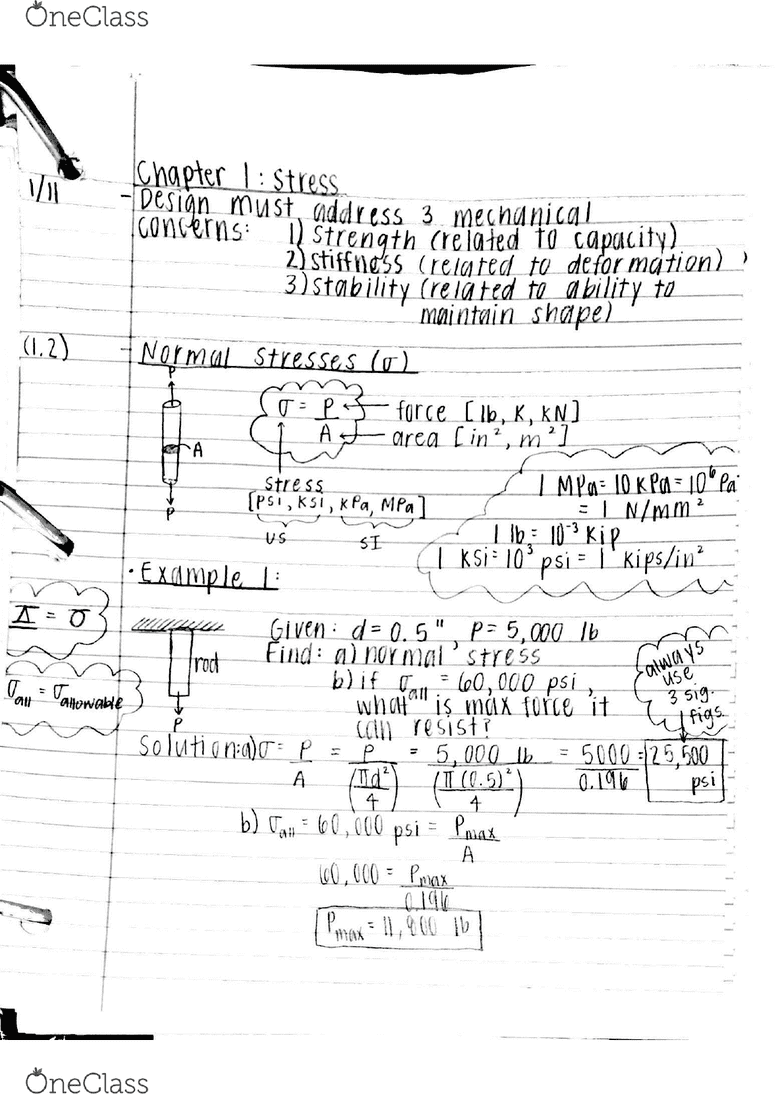 OneClass
1/11
Chapter 1: Stress
- Design must address 3 mechanical
concerns: 1) Strength (related to capacity)
2) stiffness (related to deformation)
3) stability (related to ability to
maintain shape)
(1.2)
- Normal Stresses (σ)
P
A
P
σ = P/A
force [lb, K, kN]
area [in², m²]
stress
[PSI, KSI, KPa, MPa]
US
SI
1 MPa = 10 KPa = 10⁶ Pa
= 1 N/mm²
1 lb = 10⁻³ Kip
1 KSi = 10³ psi = 1 kips/in²
• Example 1:
= σ
σall = σallowable
rod
P
Given: d = 0.5", P = 5,000 lb
Find: a) normal stress
b) if σall = 60,000 psi,
what is max force it
can resist?
always
use
3 sig.
figs.
Solution: a) σ = P/A = P/(πd²/4) = 5,000 lb/(π(0.5)²/4) = 5000/0.196 = 25,500 psi
b) σall = 60,000 psi = Pmax/A
60,000 = Pmax/0.196
Pmax = 11,800 lb
OneClass